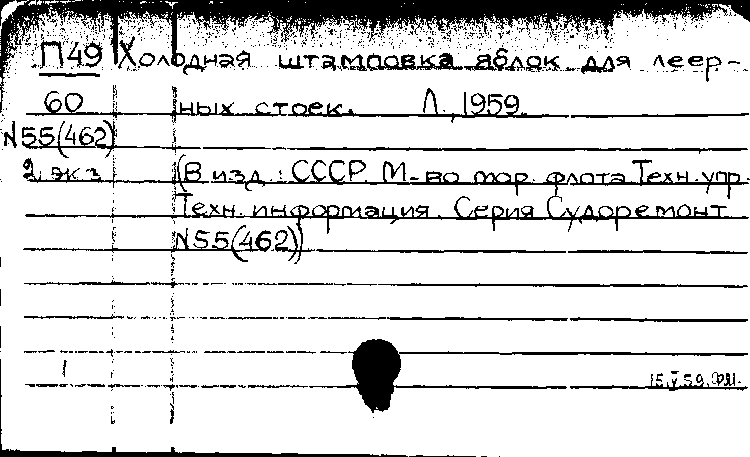 П49 Холодная штамповка яблок для леер-
60 ных стоек. Л., 1959.
N55(462)
2 экз (В изд.: СССР. М-во мор. флота. Техн. упр.
Техн. информация. Серия Судоремонт
N55(462))
1
15.V.59.